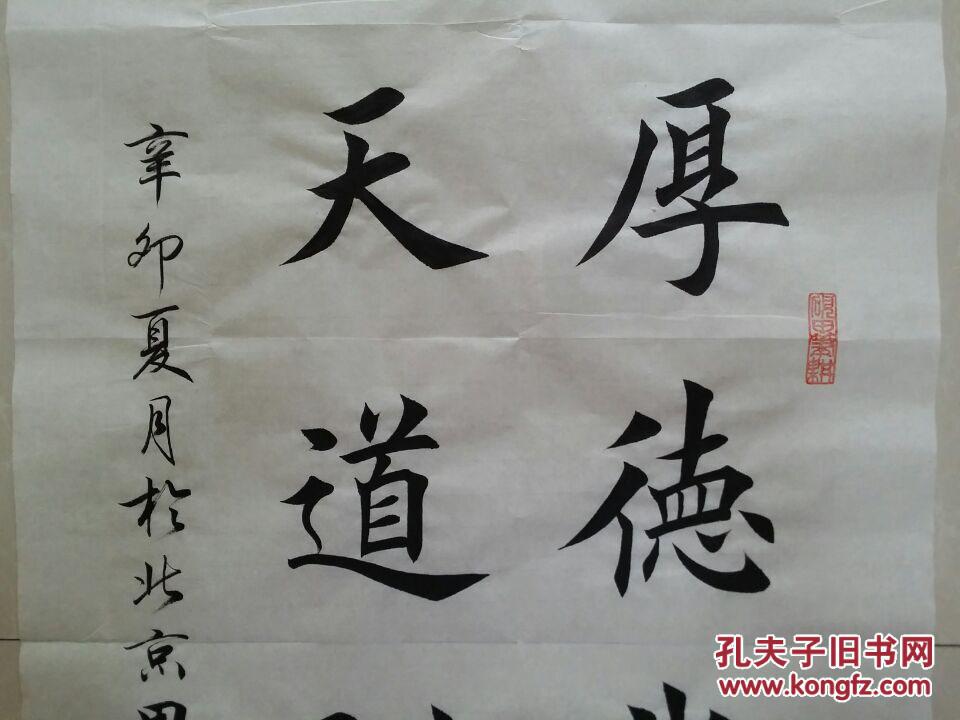 厚德
天道
辛卯夏月於北京
孔夫子旧书网
www.kongfz.com